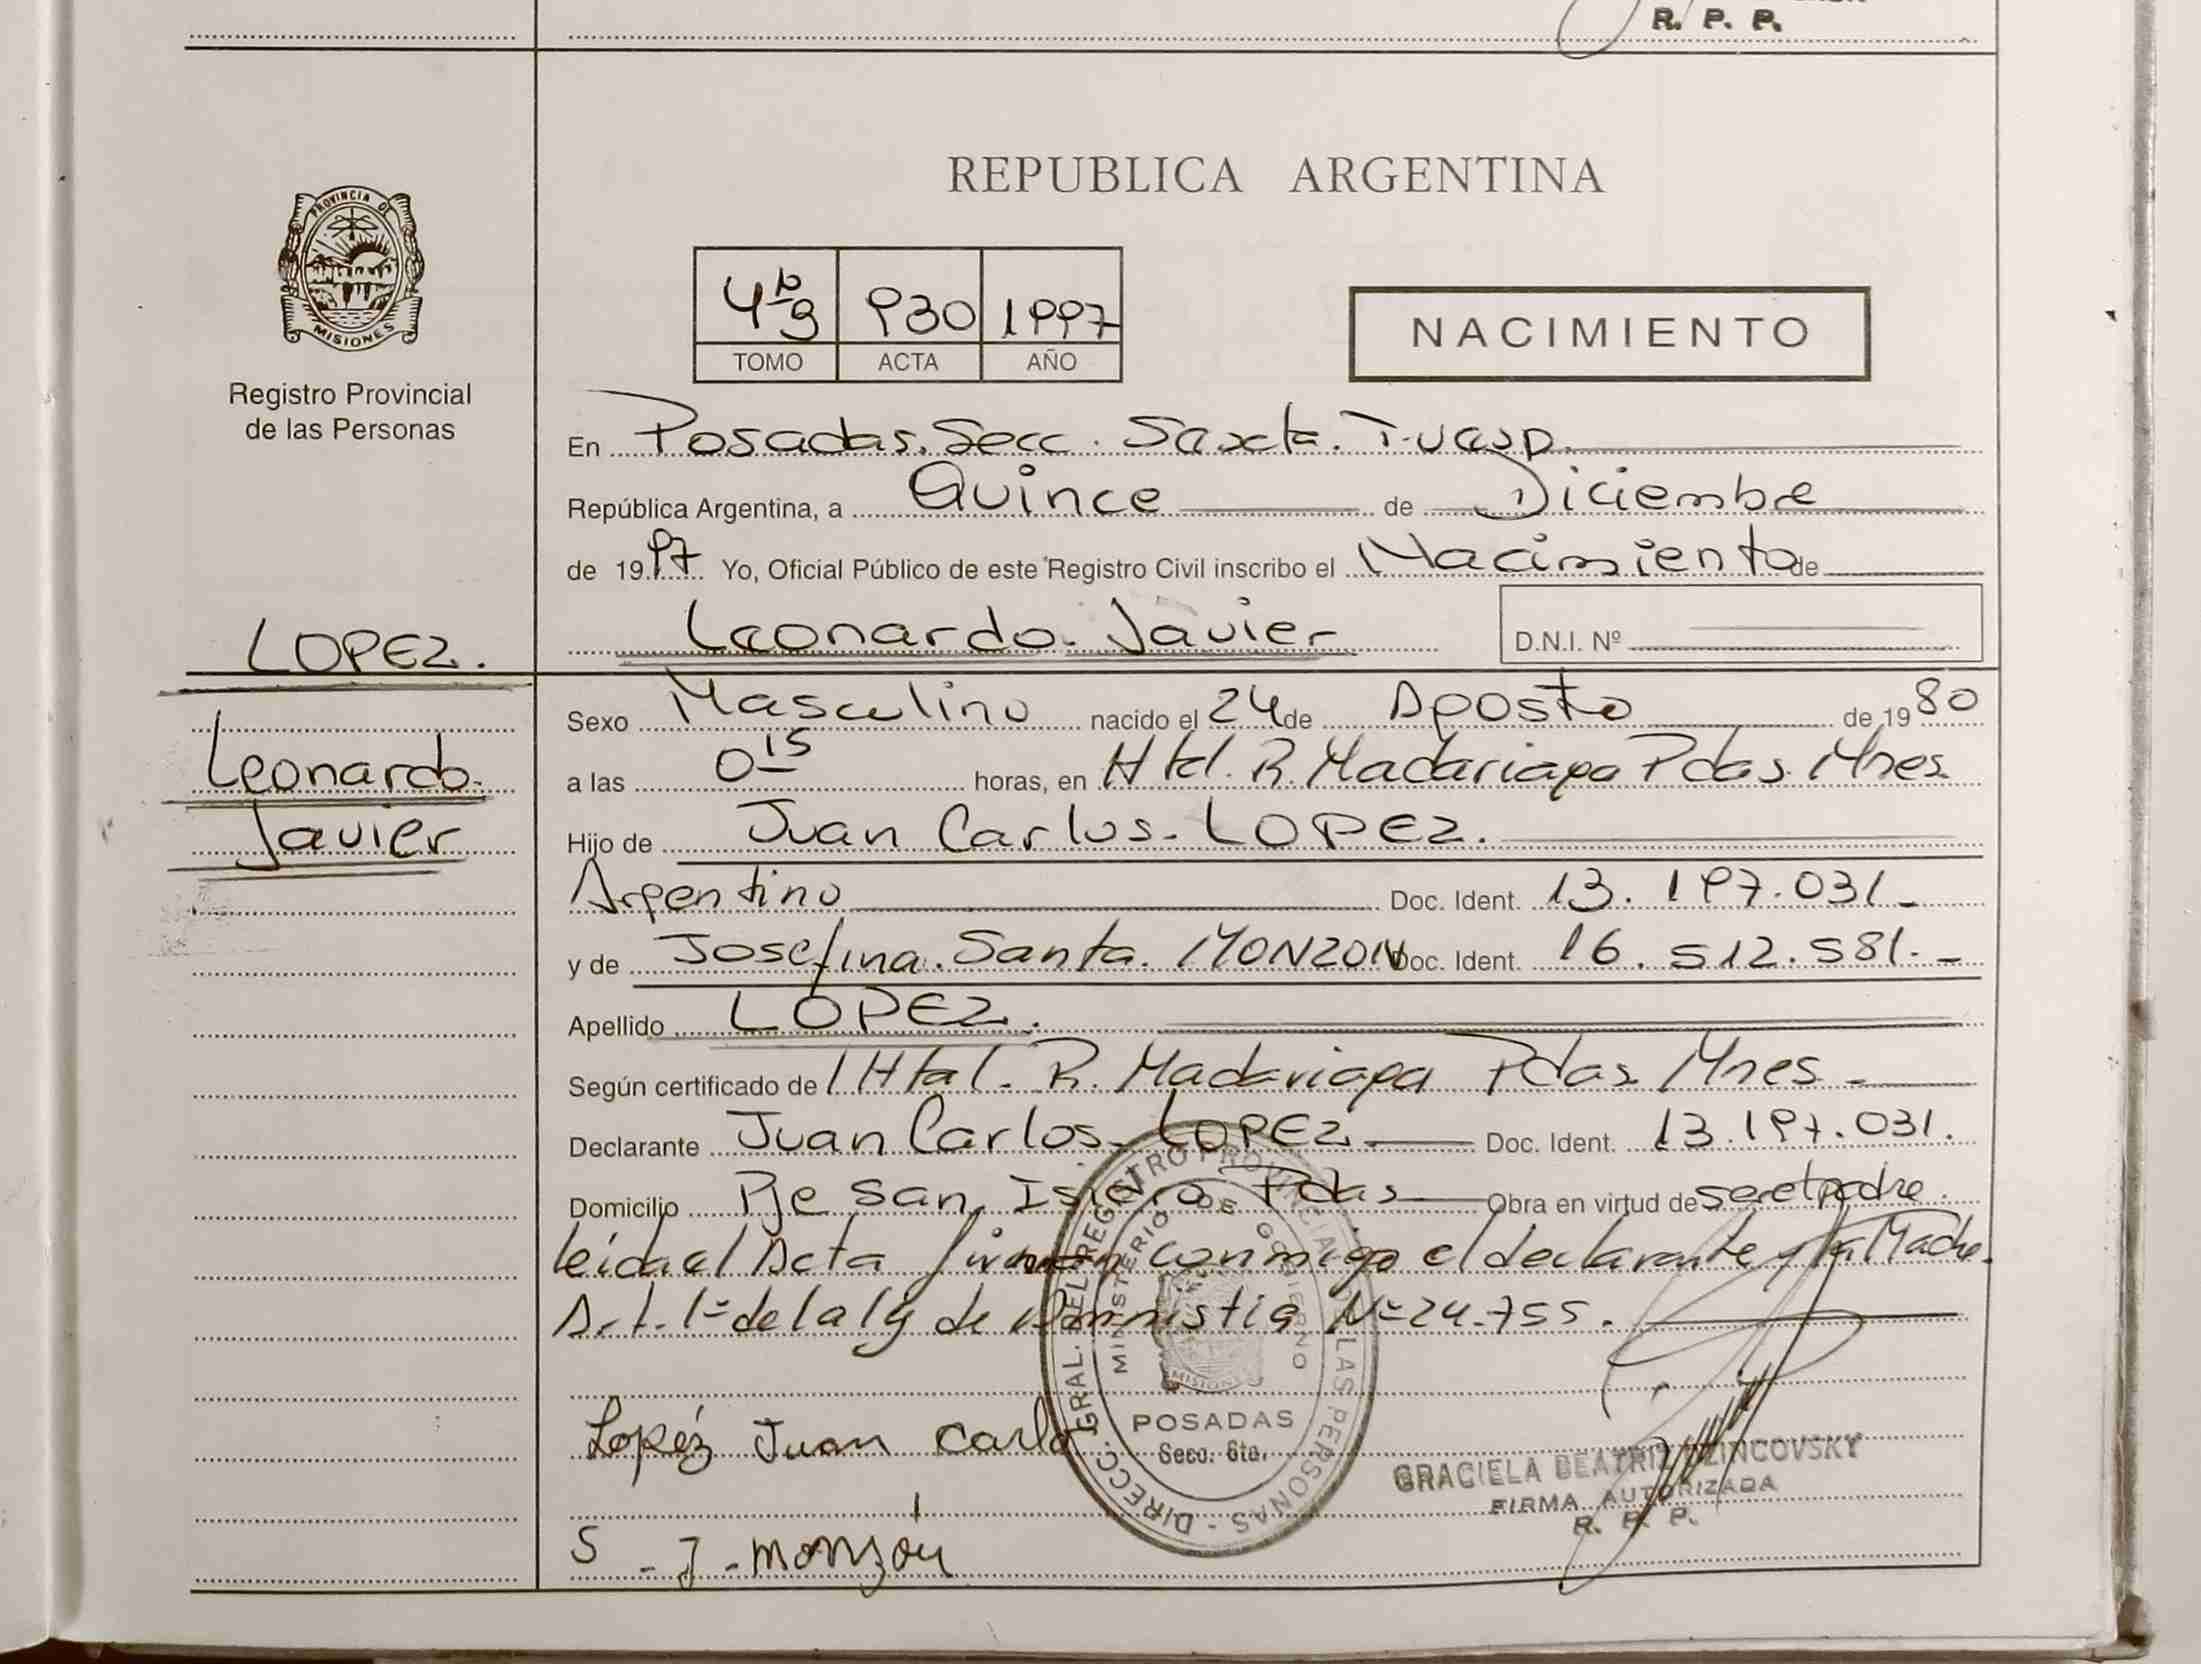 R. P. P.
REPUBLICA ARGENTINA
PROVINCIA DE
MISIONES
Registro Provincial
de las Personas
930 1997
TOMO ACTA AÑO
NACIMIENTO
En Posadas. Secc. Sexta.
República Argentina, a Quince de Diciembre
de 1997 Yo, Oficial Público de este Registro Civil inscribo el Nacimiento de
LOPEZ.
Leonardo Javier
D.N.I. Nº
Leonardo.
Javier
Sexo Masculino nacido el 24 de Agosto de 1980
a las 0 15 horas, en Htal. R. Madariaga Pdas. Mnes
Hijo de Juan Carlos - LOPEZ.
Argentino Doc. Ident. 13.197.031 -
y de Josefina. Santa. MONZON Doc. Ident. 16.512.581. -
Apellido LOPEZ.
Según certificado del Htal. R. Madariaga Pdas Mnes -
Declarante Juan Carlos - LOPEZ Doc. Ident. 13.197.031.
Domicilio Pje San Isidro Pdas Obra en virtud de ser el padre.
leida el Acta firman conmigo el declarante y la Madre.
Art. 1º de la ly de Amnistia Nº 24.755.
DIRECC. GRAL. DEL REGISTRO PROVINCIAL DE LAS PERSONAS -
MINISTERIO DE GOBIERNO
MISIONES
POSADAS
Secc. 6ta.
Lopéz Juan Carlo
GRACIELA BEATRIZ
FIRMA AUTORIZADA
R. P. P.
S - J - monzón